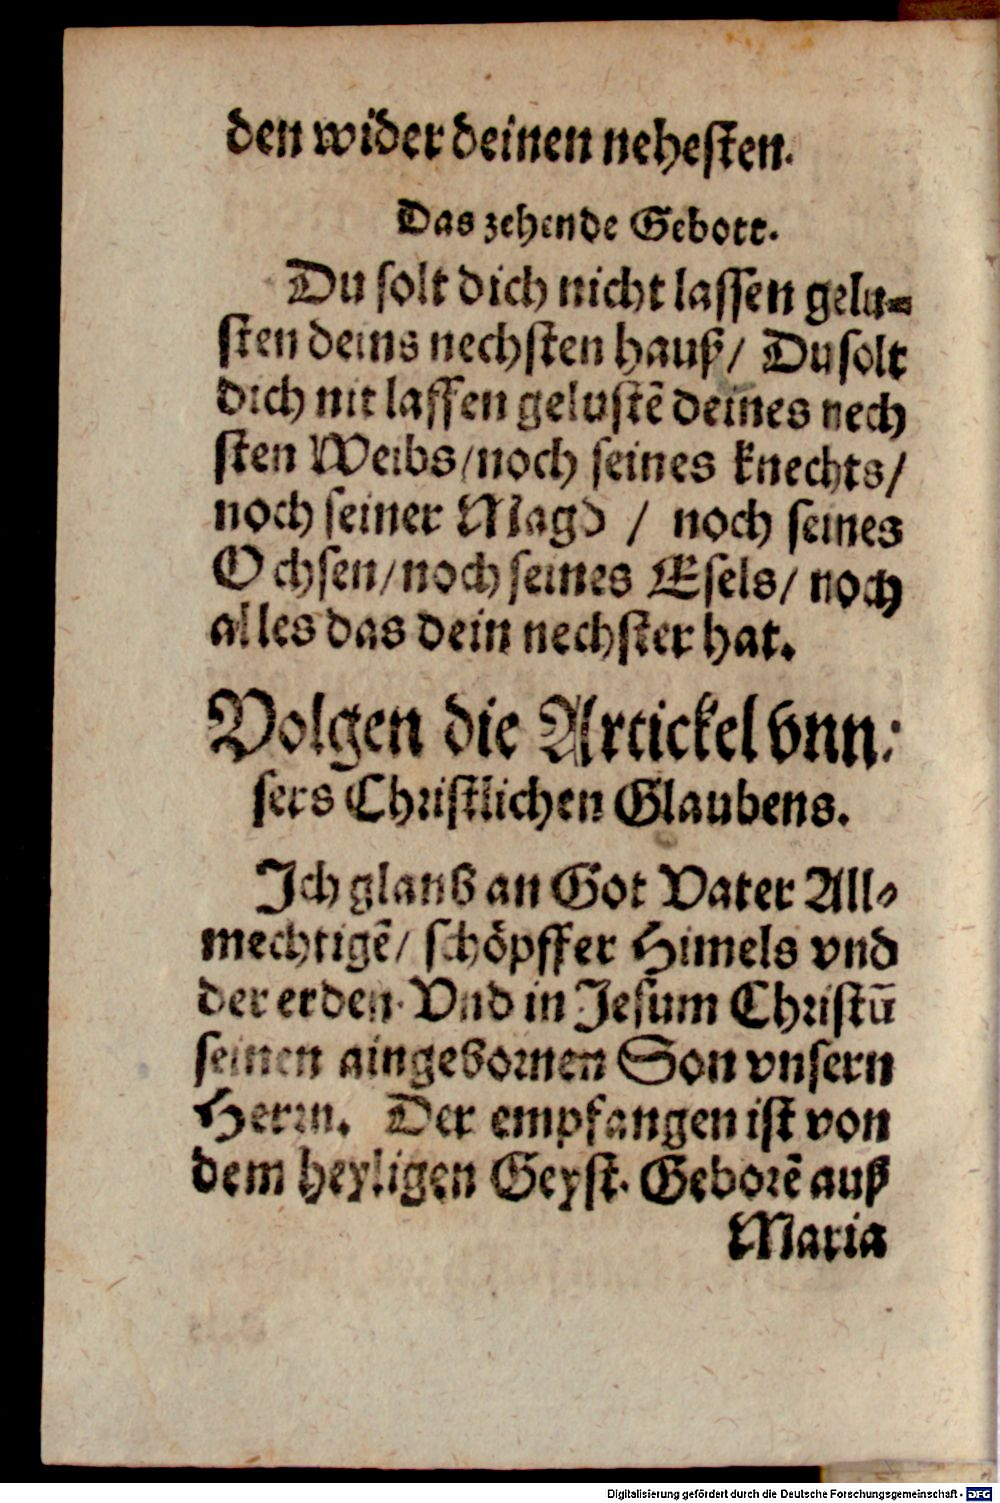 den wider deinen nehesten.
Das zehende Gebott.
Du solt dich nicht lassen gelu=
sten deins nechsten hauß/ Du solt
dich nit lassen gelustē deines nech
sten Weibs/noch seines knechts/
noch seiner Magd / noch seines
Ochsen/noch seines Esels/ noch
alles das dein nechster hat.
Volgen die Artickel vnn:
sers Christlichen Glaubens.
Ich glaub an Got Vater All=
mechtigē/ schöpffer Himels vnd
der erden. Vnd in Jesum Christū
seinen aingebornen Son vnsern
Herrn. Der empfangen ist von
dem heyligen Geyst. Geborē auß
Maria
Digitalisierung gefördert durch die Deutsche Forschungsgemeinschaft - DFG